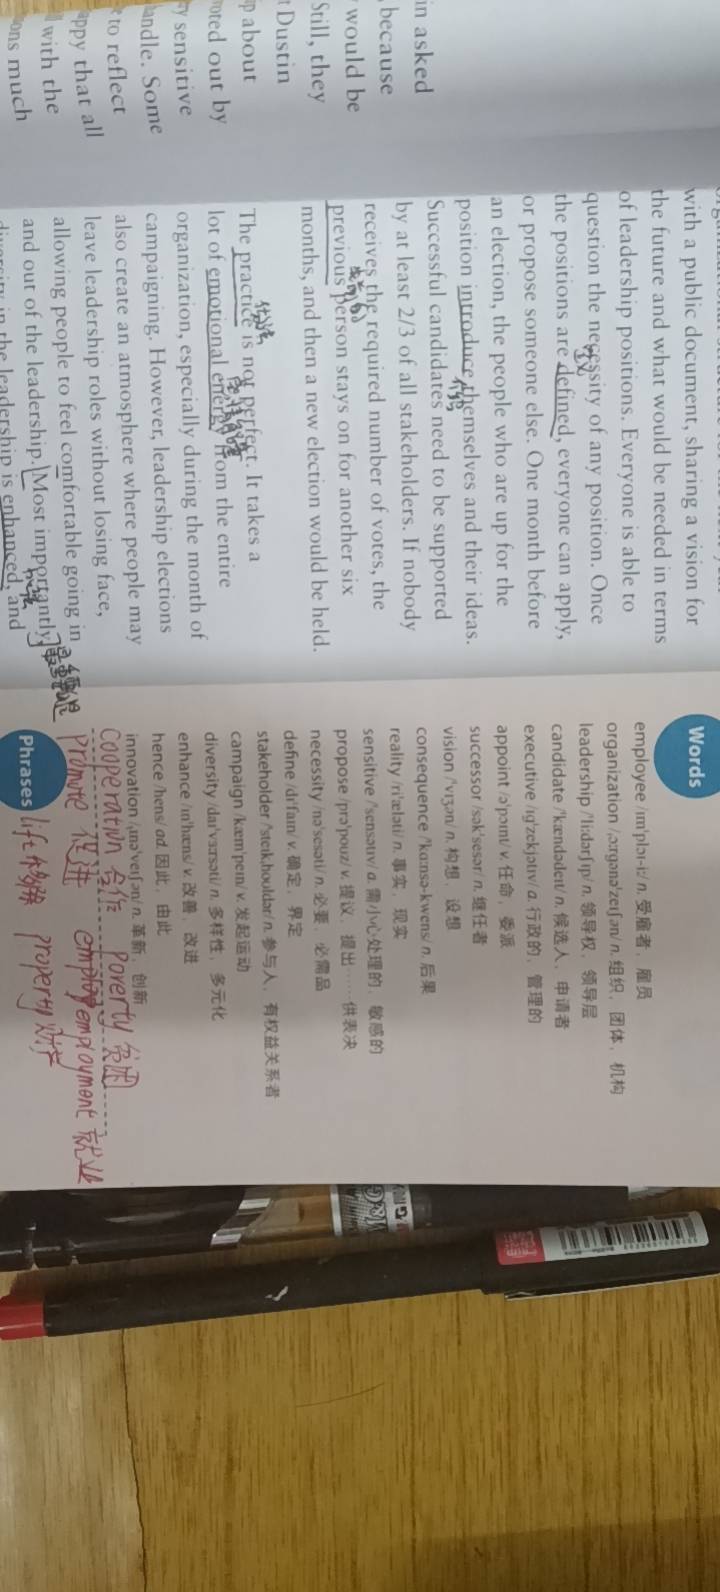 in asked
because
would be
Still, they
Dustin
about
out by
sensitive
andle. Some
to reflect
appy that all
with the
ons much
with a public document, sharing a vision for
the future and what would be needed in terms
of leadership positions. Everyone is able to
question the necessity of any position. Once
the positions are defined, everyone can apply,
or propose someone else. One month before
an election, the people who are up for the
position introduce themselves and their ideas.
Successful candidates need to be supported
by at least 2/3 of all stakeholders. If nobody
receives the required number of votes, the
previous person stays on for another six
months, and then a new election would be held.
The practice is not perfect. It takes a
lot of emotional energy from the entire
organization, especially during the month of
campaigning. However, leadership elections
also create an atmosphere where people may
leave leadership roles without losing face,
allowing people to feel comfortable going in
and out of the leadership. Most importantly,
diversity in the leadership is enhanced, and
Words
employee /ɪmˈplɔɪ-iː/ n. 受雇者，雇员
organization /ˌɔrɡənəˈzeɪʃən/ n. 组织，团体，机构
leadership /ˈliːdərʃɪp/ n. 领导权，领导层
candidate /ˈkændədeɪt/ n. 候选人，申请者
executive /ɪɡˈzekjətɪv/ a. 行政的，管理的
appoint /əˈpɔɪnt/ v. 任命，委派
successor /səkˈsesər/ n. 继任者
vision /ˈvɪʒən/ n. 构想，设想
consequence /ˈkɑːnsə-kwens/ n. 后果
reality /riˈæləti/ n. 事实，现实
sensitive /ˈsensətɪv/ a. 需小心处理的，敏感的
propose /prəˈpouz/ v. 提议，提出……供表决
necessity /nəˈsesəti/ n. 必要，必需品
define /dɪˈfaɪn/ v. 确定，界定
stakeholder /ˈsteɪkˌhouldər/ n. 参与人，有权益关系者
campaign /kæmˈpeɪn/ v. 发起运动
diversity /daɪˈvɜrsəti/ n. 多样性，多元化
enhance /ɪnˈhæns/ v. 改善，改进
hence /hens/ ad. 因此，由此
innovation /ˌɪnəˈveɪʃən/ n. 革新，创新
Cooperation 合作 poverty 贫困
promote 促进 employment 就业
Phrases lift property 财产